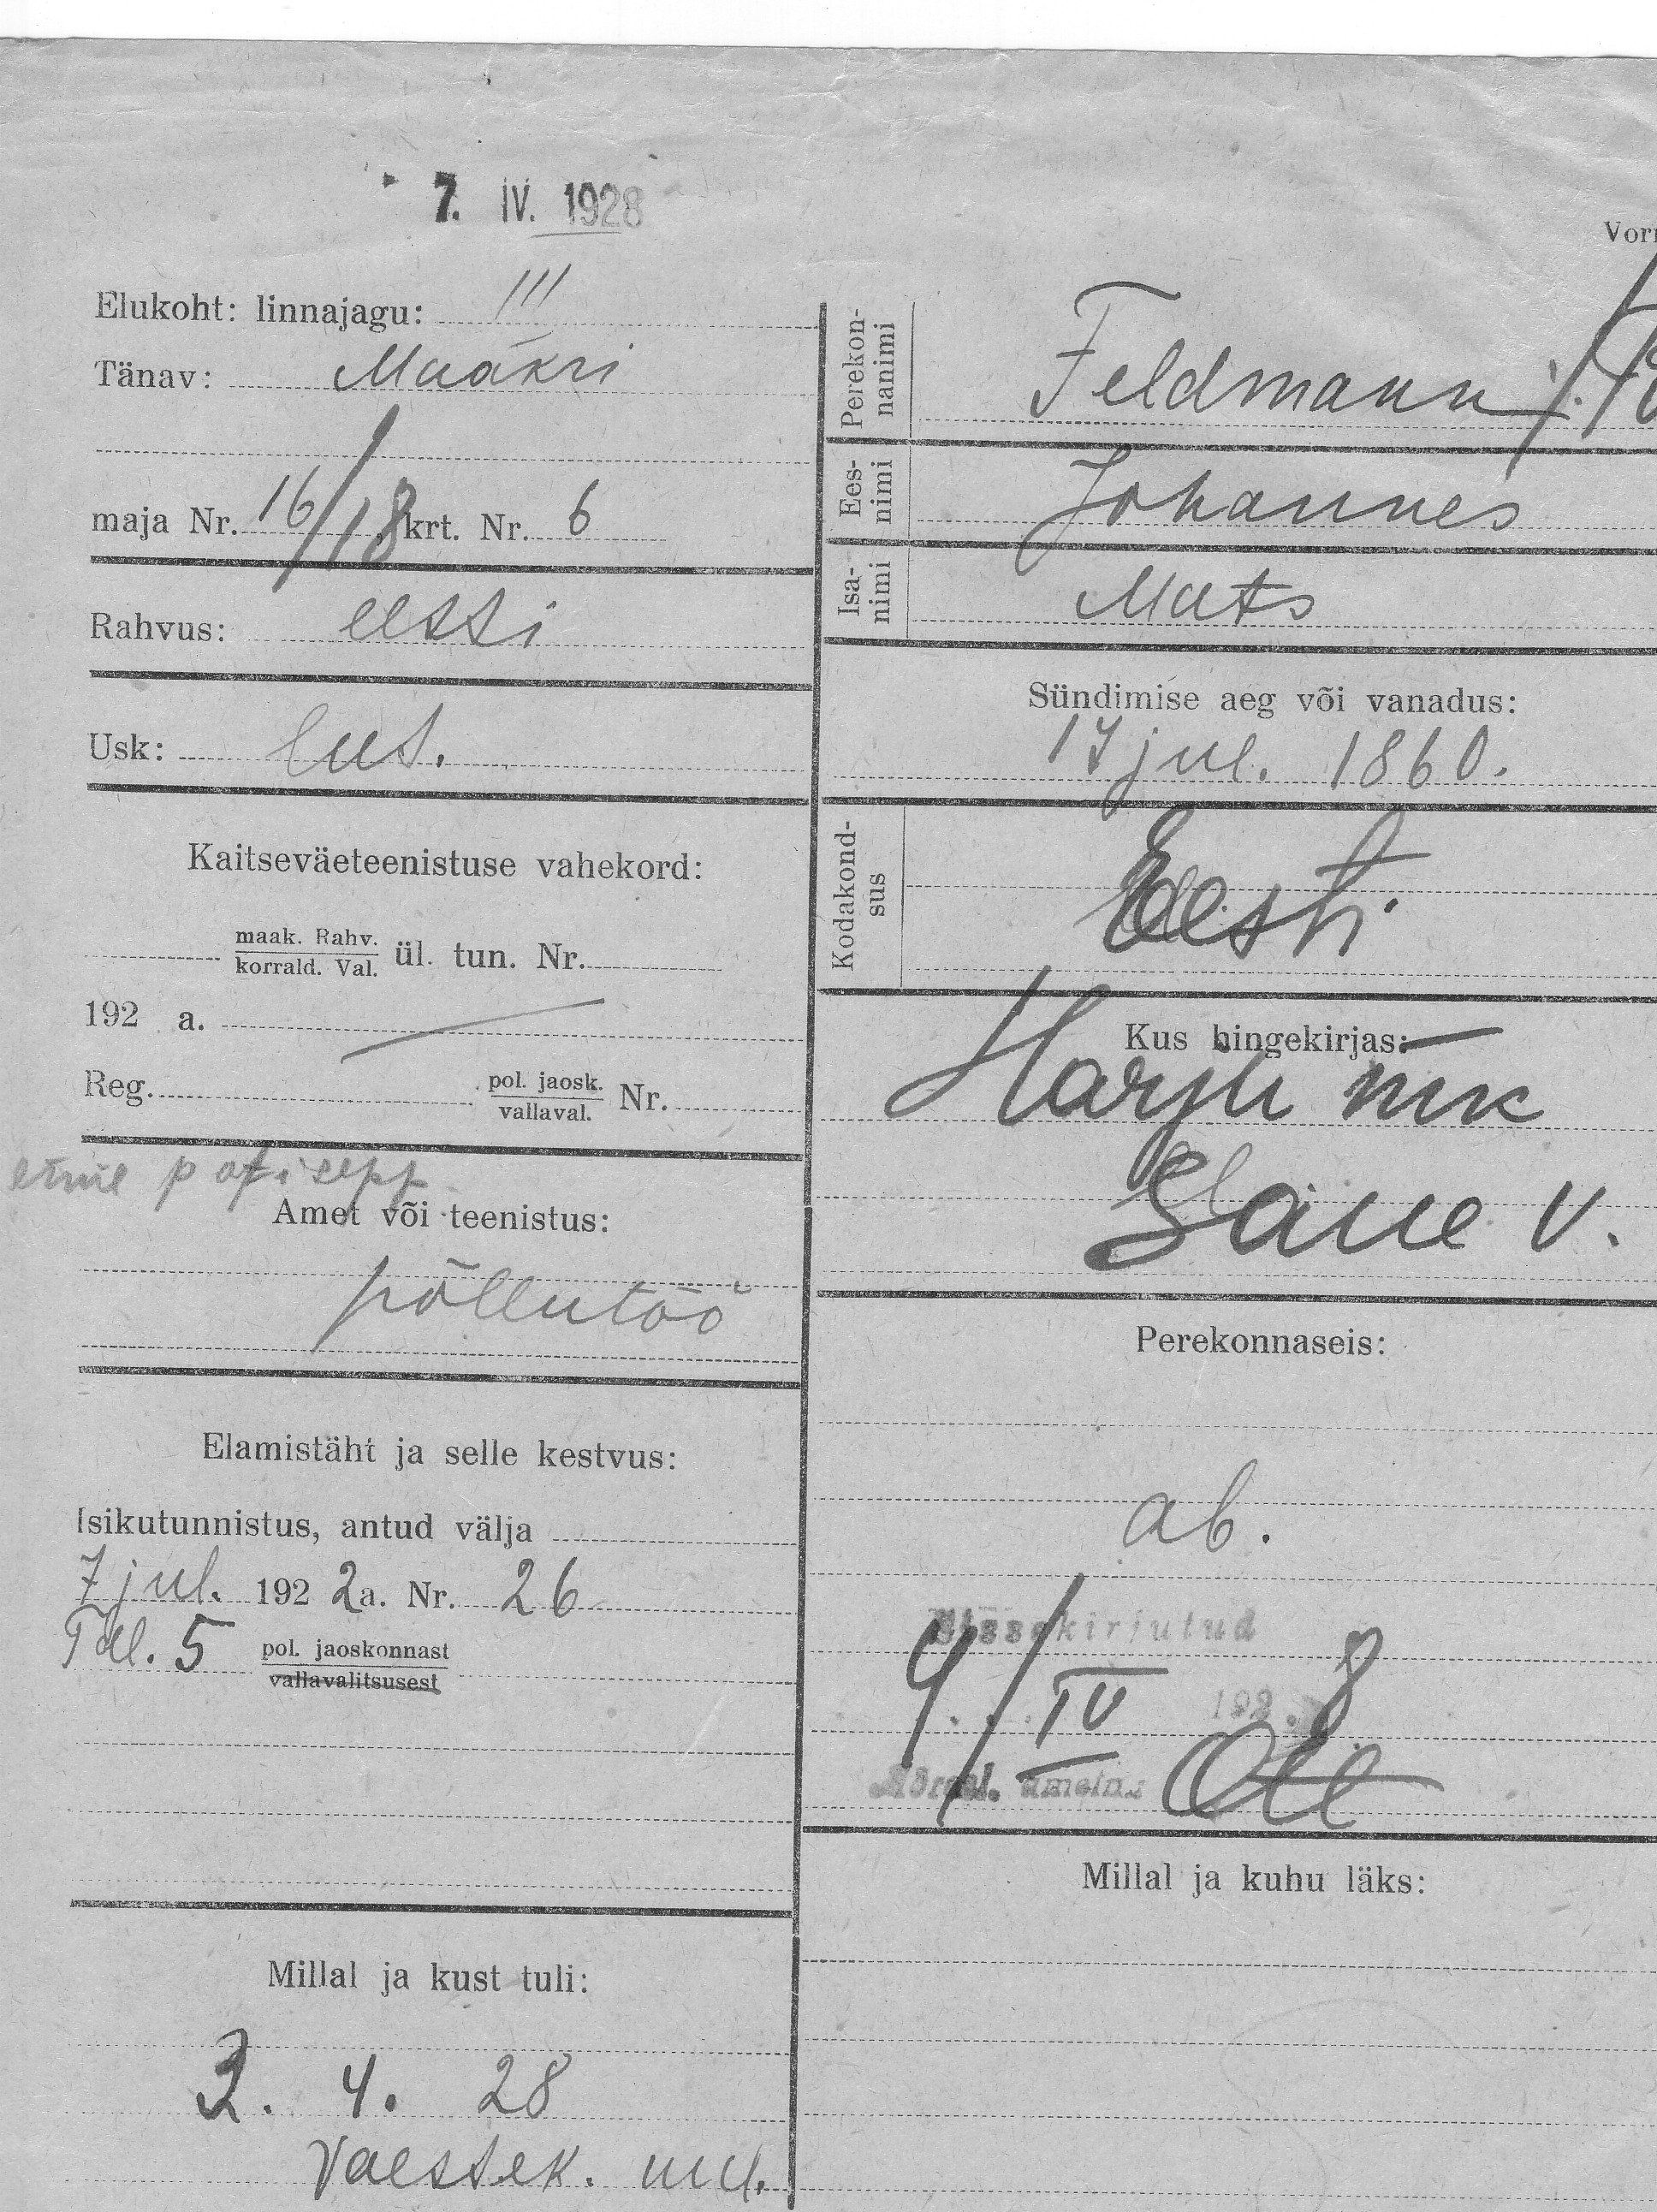 7. IV. 1928
Vor
Elukoht: linnajagu: III
Tänav: Maakri
maja Nr. 16/18 krt. Nr. 6
Rahvus: eesti
Usk: lut.
Kaitseväeteenistuse vahekord:
maak. Rahv.
korrald. Val. ül. tun. Nr.
192 a.
Reg. pol. jaosk.
vallaval. Nr.
Amet või teenistus:
põllutöö
Elamistäht ja selle kestvus:
Isikutunnistus, antud välja
7 jul. 192 2 a. Nr. 26
Tal. 5 pol. jaoskonnast
vallavalitsusest
Millal ja kust tuli:
3. 4. 28
Vaestek.
Perekon-
nanimi
Feldmann
Ees-
nimi
Johannes
Isa-
nimi
Mats
Sündimise aeg või vanadus:
17 jul. 1860.
Kodakond-
sus
Eesti
Kus hingekirjas:
Harju mk
v.
Perekonnaseis:
ab.
Sissekirjutud
4/IV 192 8
Millal ja kuhu läks: